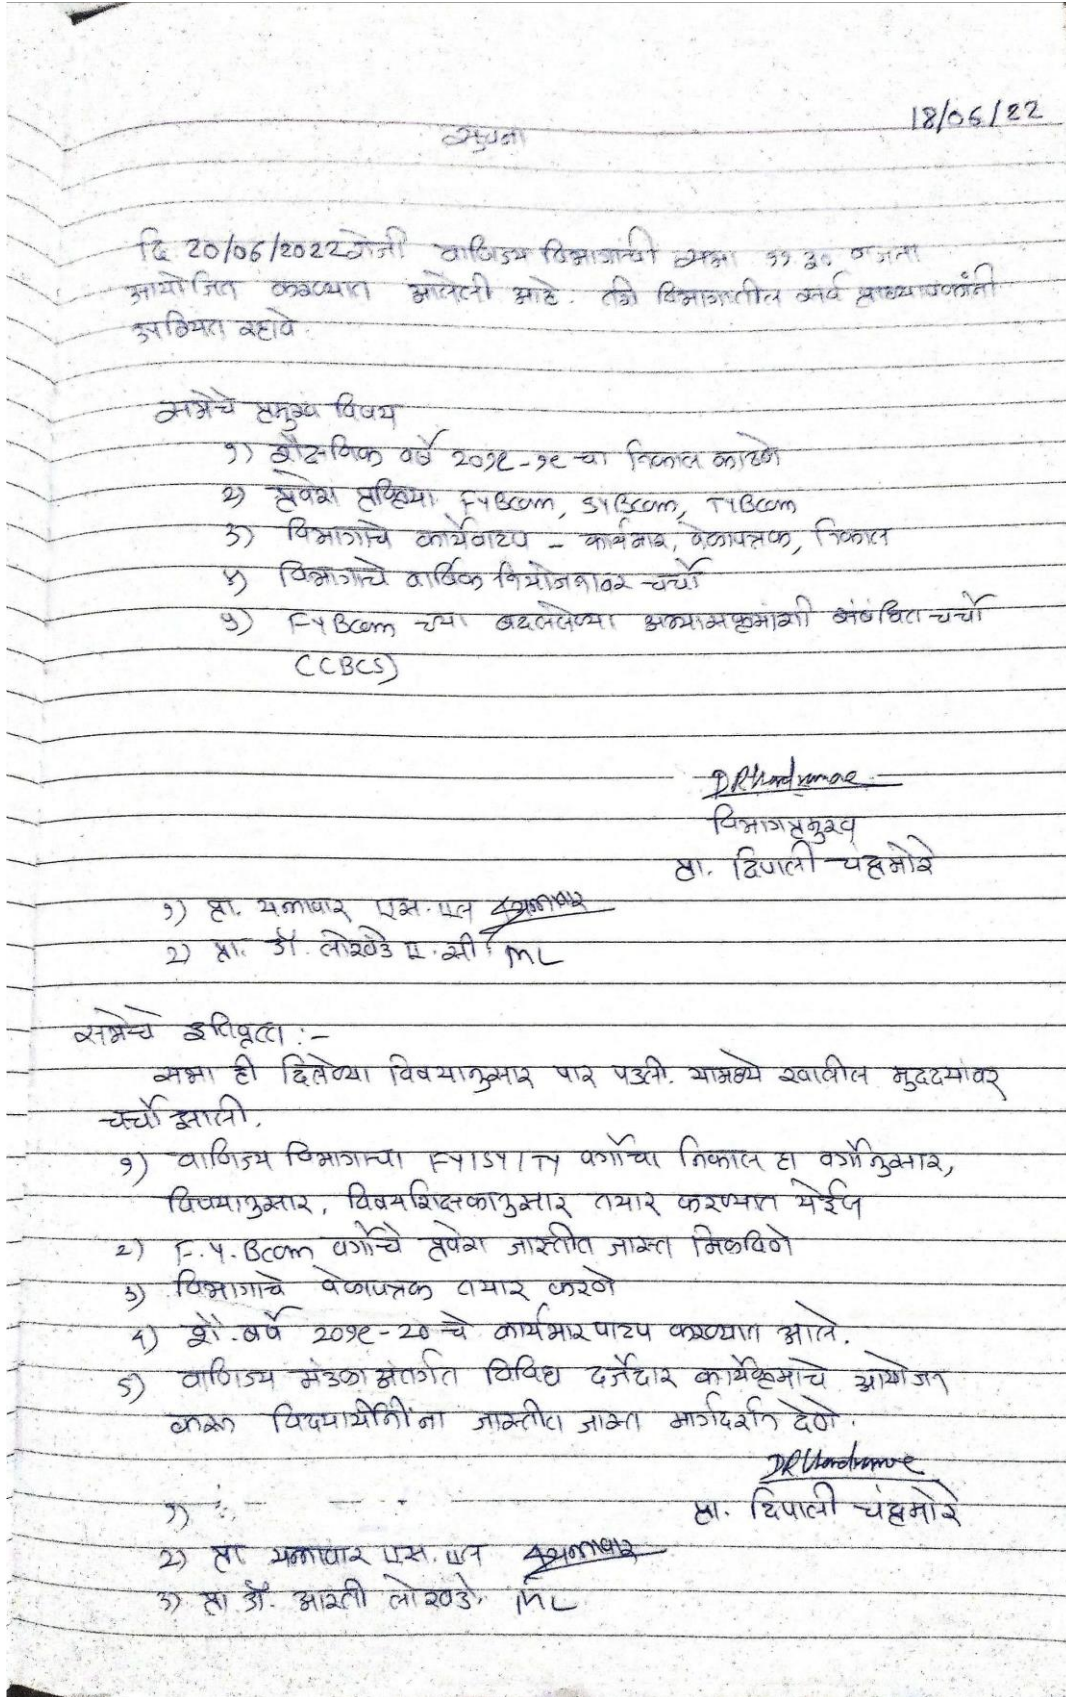 18/06/22
सुचना
दि 20/06/2022 रोजी वाणिज्य विभागाची सभा ११.३० वाजता
आयोजित करण्यात आलेली आहे. तरी विभागातील सर्व प्राध्यापकांनी
उपस्थित रहावे.
सभेचे प्रमुख विषय
१) शैक्षणिक वर्षे २०१८-१९ चा निकाल काढणे
२) प्रवेश प्रक्रिया FYBcom, SYBcom, TYBcom
३) विभागाचे कार्यवाटप - कार्यभार, वेळापत्रक, निकाल
४) विभागाचे वार्षिक नियोजनावर चर्चा
५) FYBcom च्या बदललेल्या अभ्यासक्रमांशी संबंधित चर्चा
(CBCS)
विभागप्रमुख
प्रा. दिपाली चंद्रमोरे
१) प्रा. यन्नावार एस. एल
2) प्रा. डॉ. लोखंडे ए. सी. ML
सभेचे इतिवृत्त :-
सभा ही दिलेल्या विषयानुसार पार पडली. यामध्ये खालील मुददयांवर
चर्चा झाली.
१) वाणिज्य विभागाचा FY/SY/TY वर्गाचा निकाल हा वर्गानुसार,
विषयानुसार, विषयशिक्षकानुसार तयार करण्यात येईल
2) F.Y.Bcom वर्गाचे प्रवेश जास्तीत जास्त मिळविणे
३) विभागाचे वेळापत्रक तयार करणे
4) शै. वर्षे 2०१९-20 चे कार्यभार वाटप करण्यात आले.
5) वाणिज्य मंडळा अंतर्गत विविध दर्जेदार कार्यक्रमाचे आयोजन
करून विदयार्थीनींना जास्तीत जास्त मार्गदर्शन देणे.
प्रा. दिपाली चंद्रमोरे
१)
२) प्रा यन्नावार एस. एल
३) प्रा. डॉ. आरती लोखंडे. ML